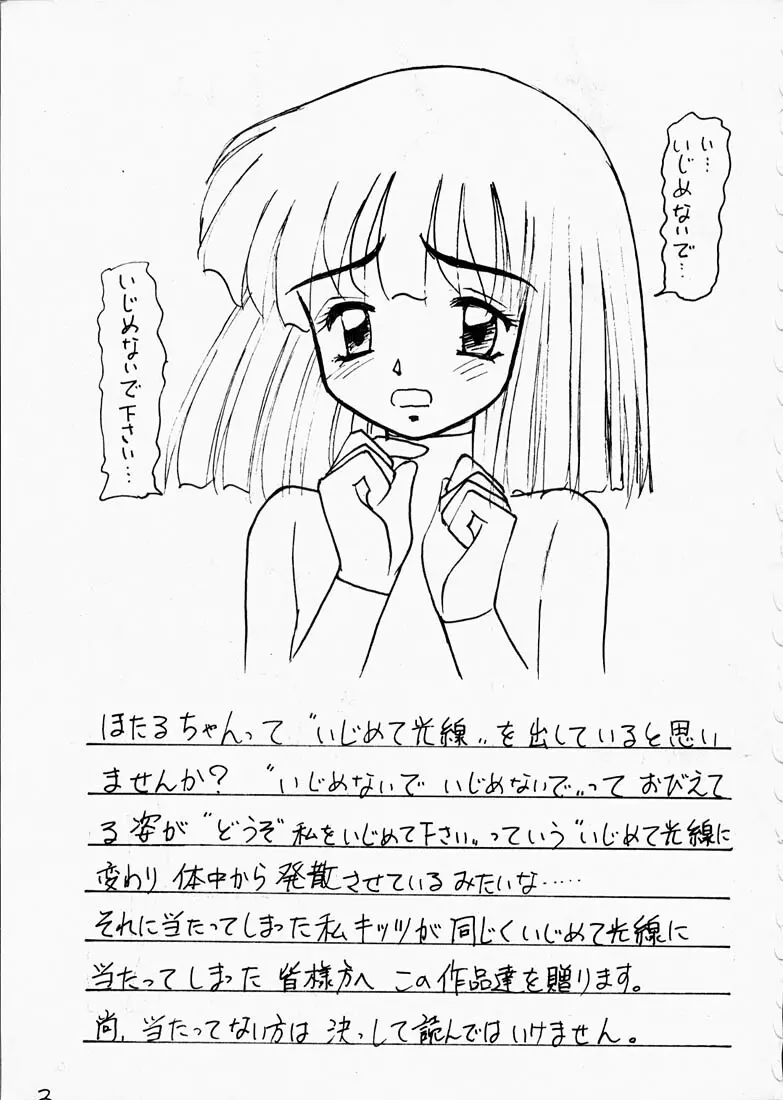 い…
いじめないで…
いじめないで下さい…
ほたるちゃんって〝いじめて光線〟を出していると思い
ませんか？〝いじめないで いじめないで〟って おびえて
る姿が〝どうぞ〝私をいじめて下さい〟っていう〝いじめて光線に
変わり 体中から 発散させているみたいな……
それに当たってしまった私キッツが 同じくいじめて光線に
当たってしまった 皆様方へ この作品達を贈ります。
尚、当たってない方は 決っして読んではいけません。